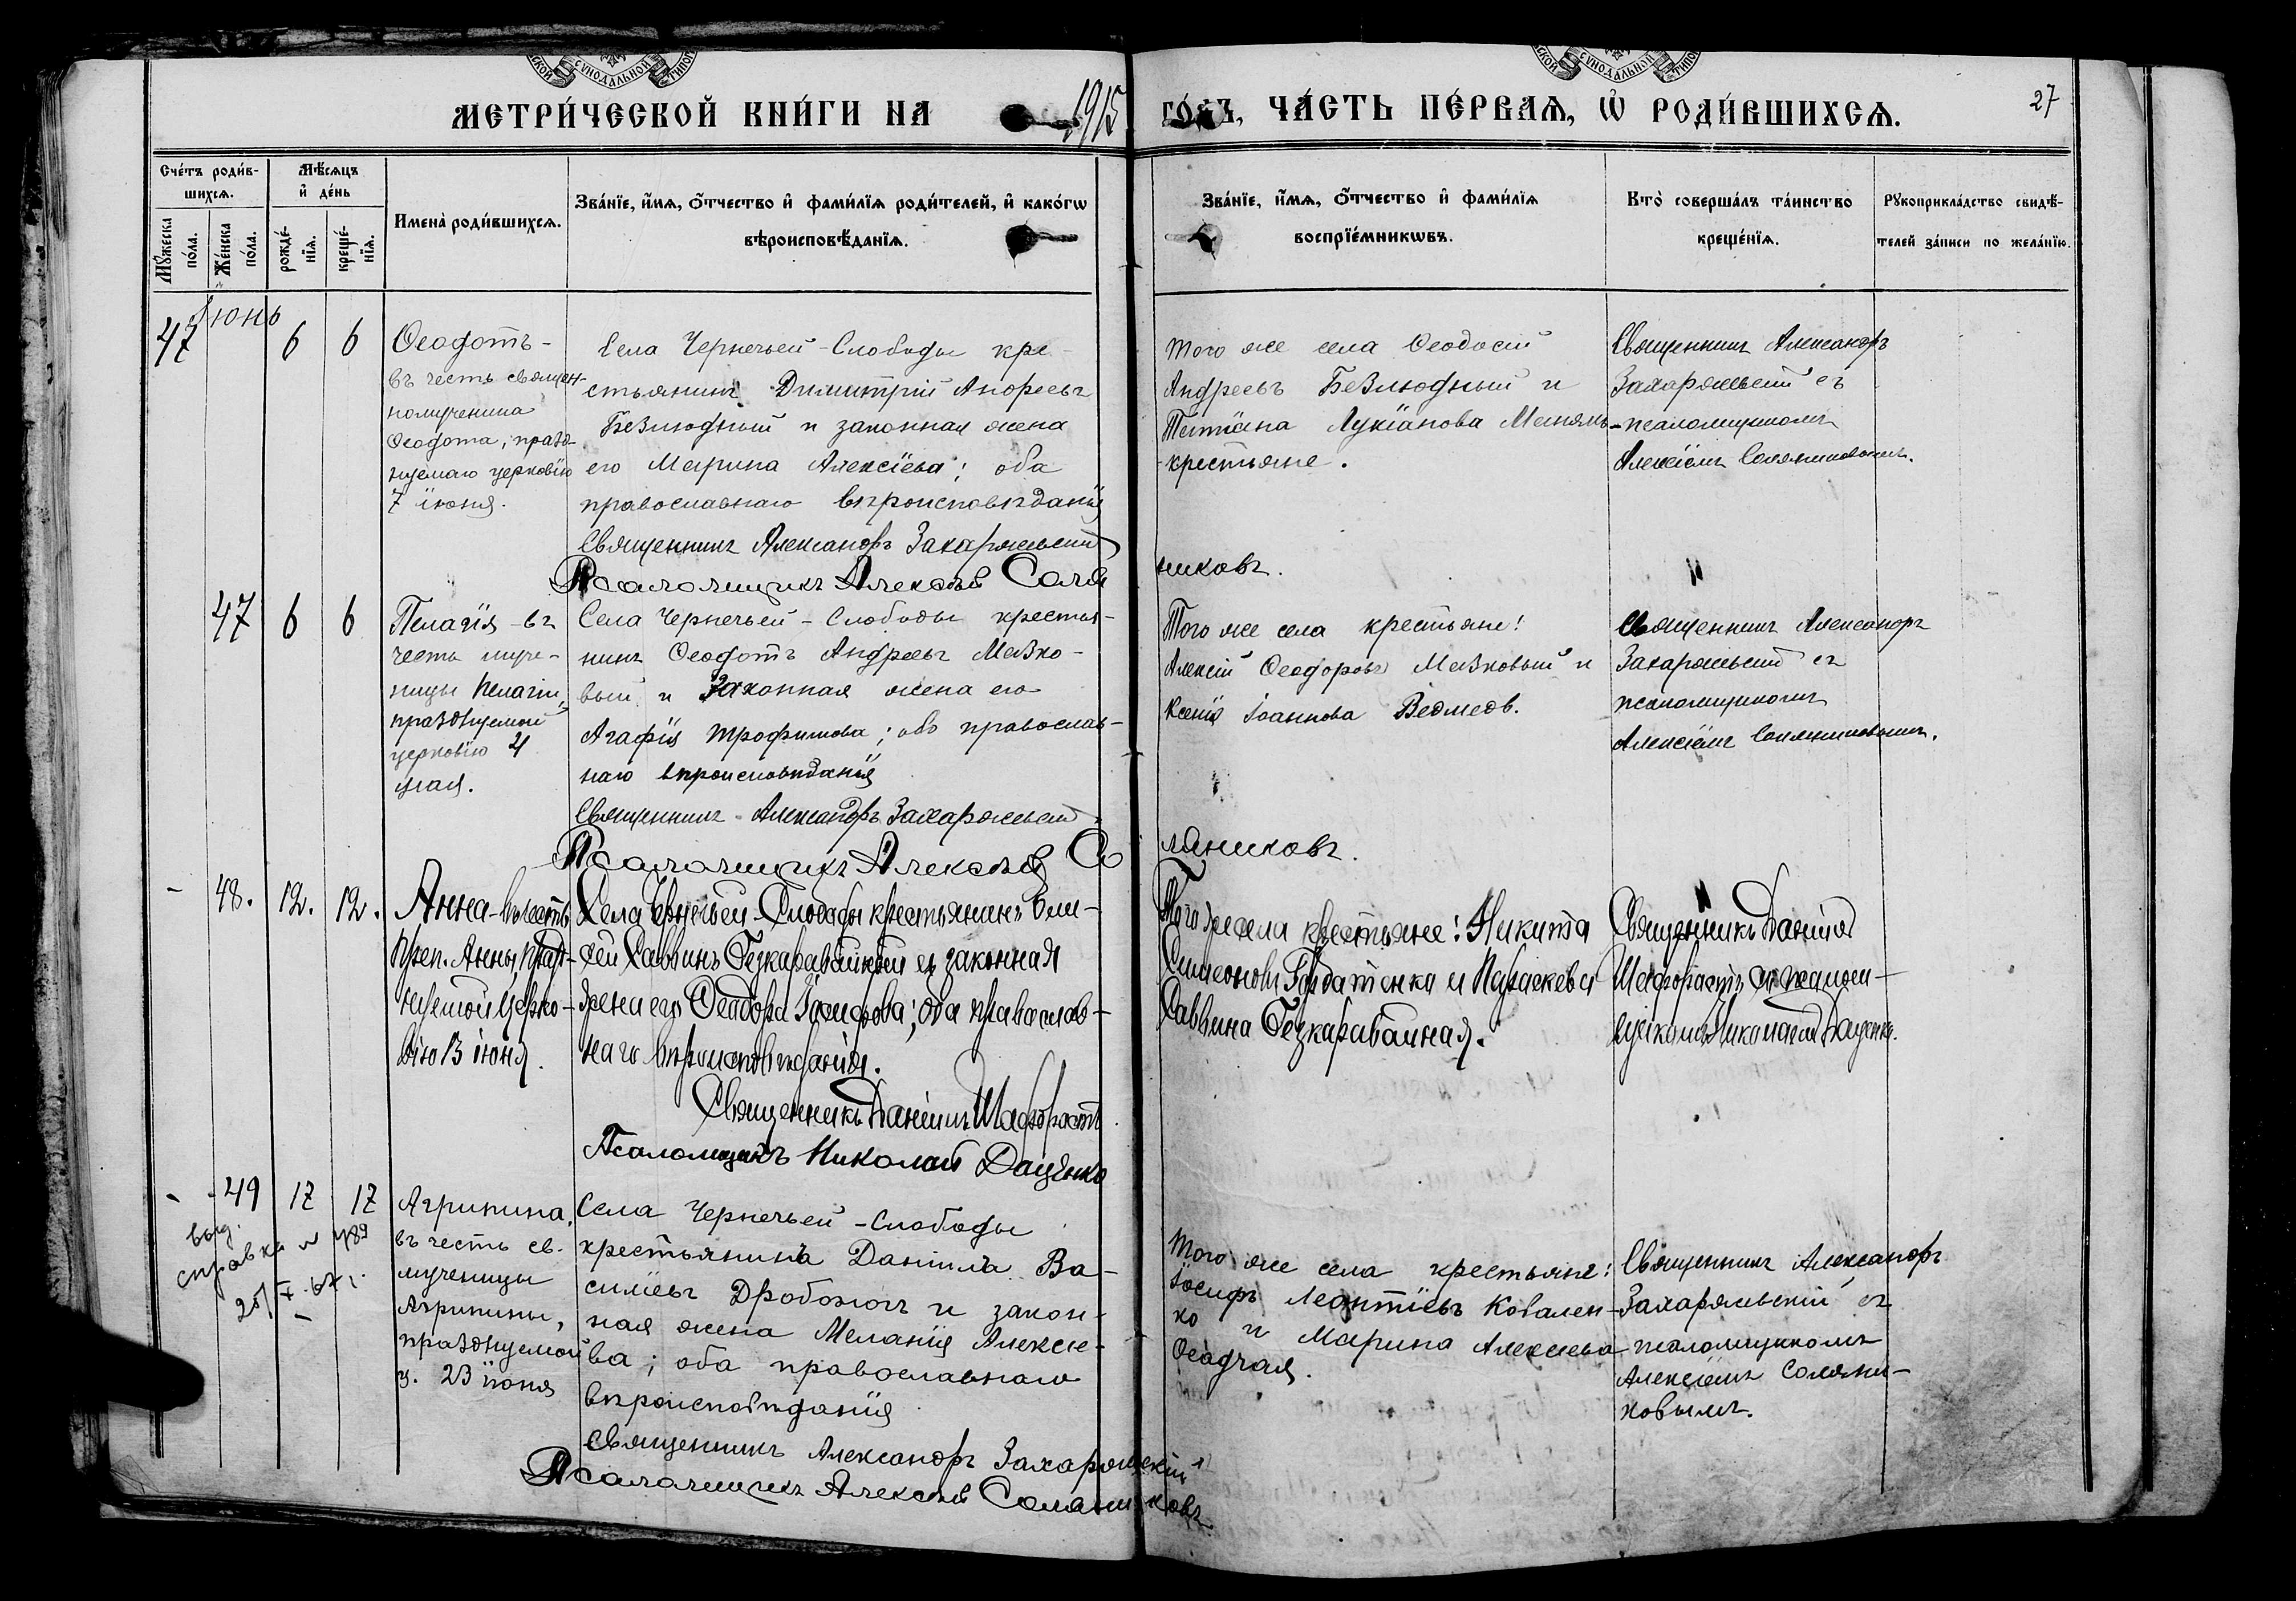 СУНОДАЛЬНОЙ
СУНОДАЛЬНОЙ
МЕТРИ́ЧЕСКОЙ КНИ́ГИ НА 1915 ГО́ДЪ, ЧА́СТЬ ПЕ́РВАѦ, Ѡ҆ РОДИ́ВШИХСѦ. 27
Сче́тъ роди́в-
шихсѧ.
Мꙋ́жеска по́ла.
Же́нска по́ла.
Мѣ́сѧцъ
и҆ де́нь
рожде́-
нїѧ.
креще́-
нїѧ.
Имена̀ роди́вшихсѧ.
Зва́нїе, и҆́мѧ, ѻ҆́тчество и҆ фами́лїѧ роди́телей, и҆ како́гѡ
вѣроисповѣ́данїѧ.
Зва́нїе, и҆́мѧ, ѻ҆́тчество и҆ фами́лїѧ
воспрїе́мникѡвъ.
Кто̀ соверша́лъ та́инство
креще́нїѧ.
Рꙋкоприкла́дство свидѣ́-
телей за́писи по жела́нїю.
Іюнь
47 6 6
Ѳеодотъ -
въ честь священ-
номученика
Ѳеодота, празд-
нуемаго церковію
7 іюня.
Села Чернечьей-Слободы кре-
стьянинъ Димитрій Андреевъ
Безлюдный и законная жена
его Марина Алексіева; оба
православнаго вѣроисповѣданія
Священникъ Александръ Захаржевскій
Псаломщикъ Алексѣй Соляниковъ.
Того же села Ѳеодосій
Андреевъ Безлюдный и
Татіана Лукіанова
крестьяне.
Священникъ Александръ
Захаржевскій съ
псаломщикомъ
Алексіемъ Соляниковымъ.
47 6 6
Пелагія въ
честь муче-
ницы Пелагіи,
празднуемой
церковію 4
мая.
Села Чернечьей-Слободы крестья-
нинъ Ѳеодотъ Андреевъ Мазко-
вый и законная жена его
Агафія Трофимова; оба православ-
наго вѣроисповѣданія
Священникъ Александръ Захаржевскій
Псаломщикъ Алексѣй Соляниковъ.
Того же села крестьяне:
Алексій Ѳеодоровъ Мазковый и
Ксенія Іоаннова Ведмедв.
Священникъ Александръ
Захаржевскій съ
псаломщикомъ
Алексіемъ Соляниковымъ.
- 48. 12. 12.
Анна - въ честь
преп. Анны, празд-
нуемой церко-
вію 13 іюня.
Села Чернечьей-Слободы крестьянинъ Ели-
сей Саввинъ Безкаравайный и законная
жена его Ѳеодора Іосифова; оба православ-
наго вѣроисповѣданія.
Священникъ Даніилъ Шафорастъ
Псаломщикъ Николай Даценко
Того же села крестьяне: Никита
Симеоновъ и Параскева
Саввина Безкаравайная.
Священникъ Даніилъ
Шафорастъ съ псалом-
щикомъ Николаемъ Даценко.
- 49 17 17
выд.
справка № 489
25/X-67 г.
Агрипина,
въ честь св.
мученицы
Агрипины,
празднуемой
ц. 23 іюня
Села Чернечьей-Слободы
крестьянинъ Даніилъ Ва-
силіевъ Дробожогъ и закон-
ная жена Меланія Алексіе-
ва; оба православнаго
вѣроисповѣданія
Священникъ Александръ Захаржевскій
Псаломщикъ Алексѣй Соляниковъ
Того же села крестьяне:
Іосифъ Леонтіевъ Ковален-
ко и Марина Алексіева
Осадчая.
Священникъ Александръ
Захаржевскій съ
псаломщикомъ
Алексіемъ Соляни-
ковымъ.